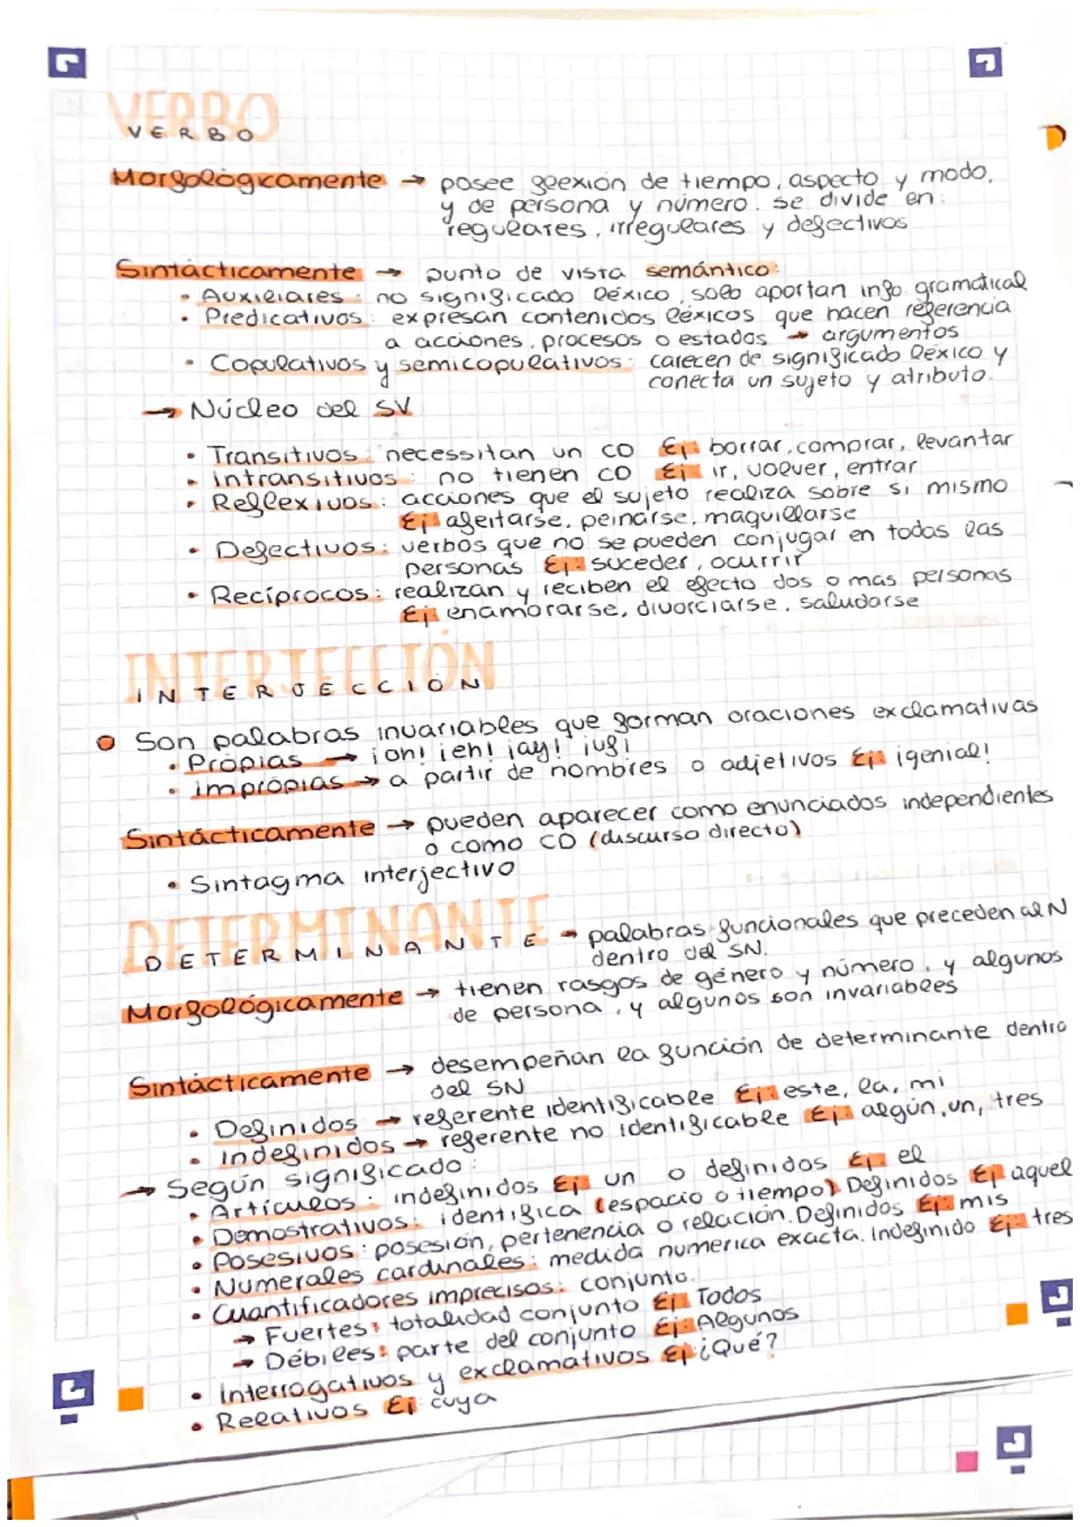 VERBO
VERBO
Morfológicamente → posee flexión de tiempo, aspecto y modo,
y de persona y número. Se divide en:
regulares, irregulares y defectivos
Sintácticamente → punto de vista semántico:
• Auxiliares: no significado léxico, solo aportan info. gramatical
• Predicativos: expresan contenidos léxicos que hacen referencia
a acciones, procesos o estados. → argumentos
• Copulativos y semicopulativos: carecen de significado léxico y
conecta un sujeto y atributo.
→ Núcleo del SV
• Transitivos: necessitan un CD Ej: borrar, comprar, levantar
• intransitivos: no tienen CD Ej: ir, volver, entrar
• Reflexivos: acciones que el sujeto realiza sobre si mismo
Ej: afeitarse, peinarse, maquillarse
• Defectivos: verbos que no se pueden conjugar en todas las
personas Ej: suceder, ocurrir
• Recíprocos: realizan y reciben el efecto dos o más personas
Ej: enamorarse, divorciarse, saludarse
INTERJECCIÓN
INTERJECCIÓN
Son palabras invariables que forman oraciones exclamativas
• Propias → ¡oh! ¡eh! ¡ay! ¡uf!
• impropias → a partir de nombres o adjetivos Ej: ¡genial!
Sintácticamente → pueden aparecer como enunciados independientes
o como CD (discurso directo)
• Sintagma interjectivo
DETERMINANTE
DETERMINANTE → palabras funcionales que preceden al N
dentro del SN.
Morfológicamente → tienen rasgos de género y número, y algunos
de persona, y algunos son invariables
Sintácticamente → desempeñan la función de determinante dentro
del SN
• Definidos → referente identificable Ej: este, la, mi
• indefinidos → referente no identificable Ej: algún, un, tres
→ Según significado:
• Artículos: indefinidos Ej: un o definidos Ej: el
• Demostrativos: identifica (espacio o tiempo) Definidos Ej: aquel
• Posesivos: posesión, pertenencia o relación. Definidos Ej: mis
• Numerales cardinales: medida numerica exacta. Indefinido Ej: tres
• Cuantificadores imprecisos: conjunto.
→ Fuertes: totalidad conjunto Ej: Todos
→ Débiles: parte del conjunto Ej: Algunos
• Interrogativos y exclamativos Ej: ¿Qué?
• Relativos Ej: cuya